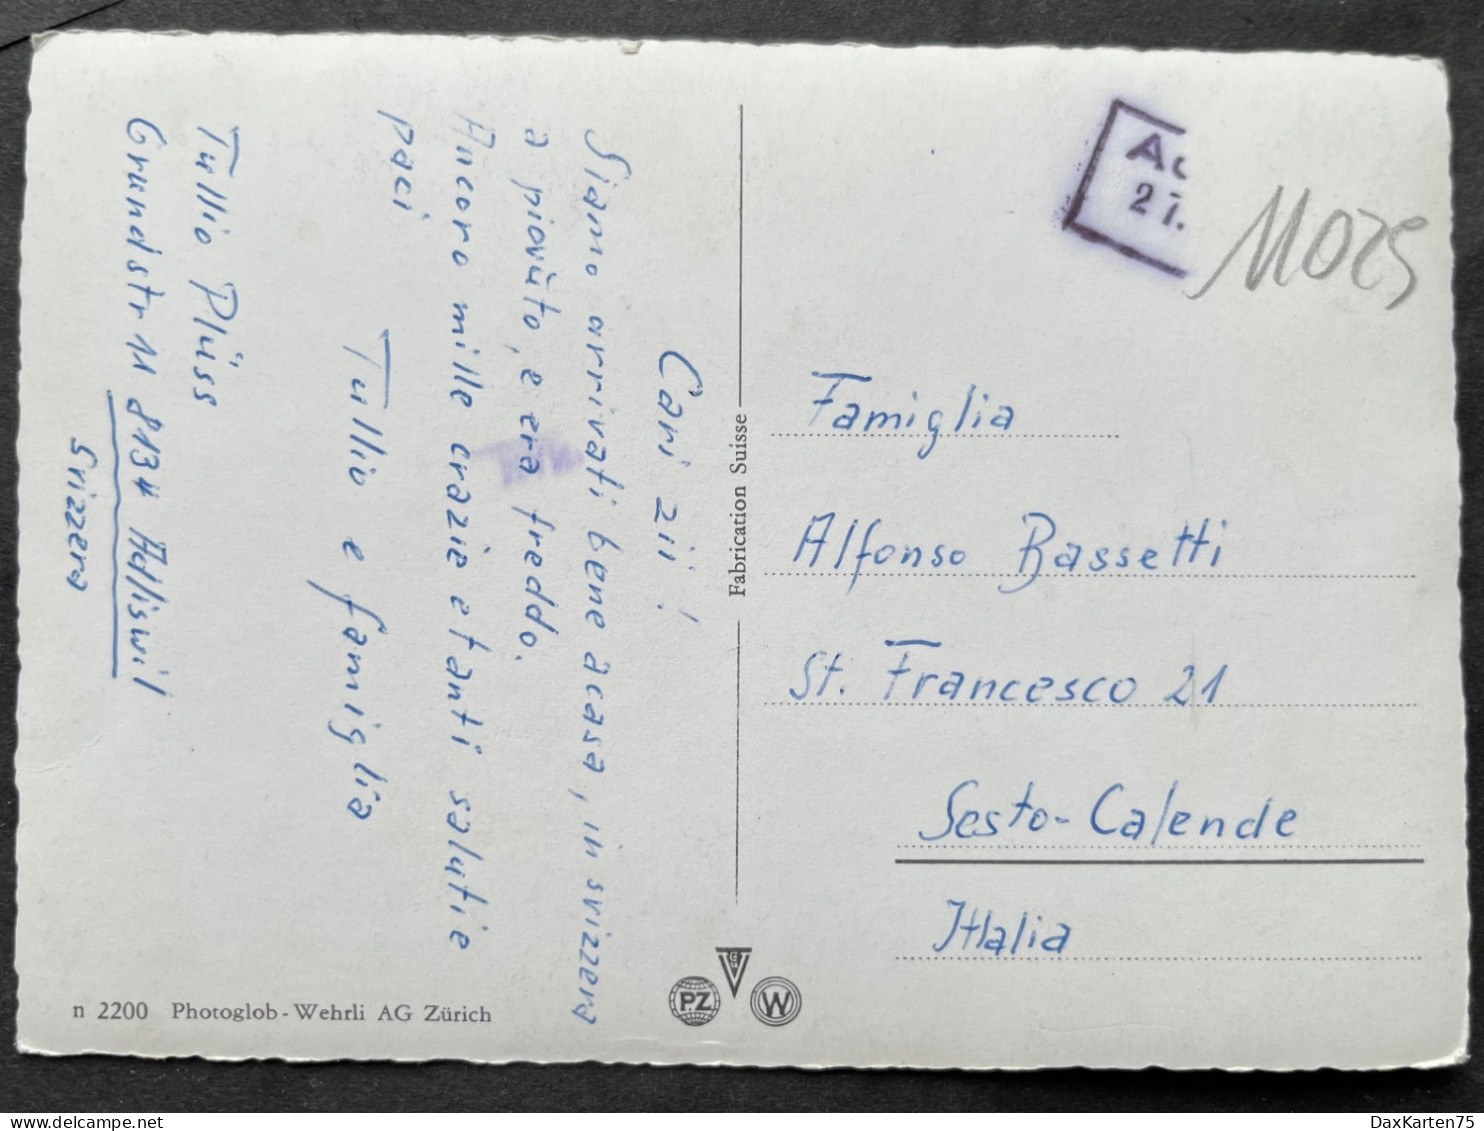 Cari zii!
Siamo arrivati bene acasa, in svizzera
a piovùto, e era freddo.
Ancoro mille crazie e tanti salutie
paci
Tullio e famiglia
Tullio Plüss
Grundstr 11 8134 Adliswil
Svizzera
Fabrication Suisse
Ad
27.
11025
Famiglia
Alfonso Bassetti
St. Francesco 21
Sesto-Calende
Itlalia
n 2200 Photoglob-Wehrli AG Zürich
PZ
W
DaxKarten75